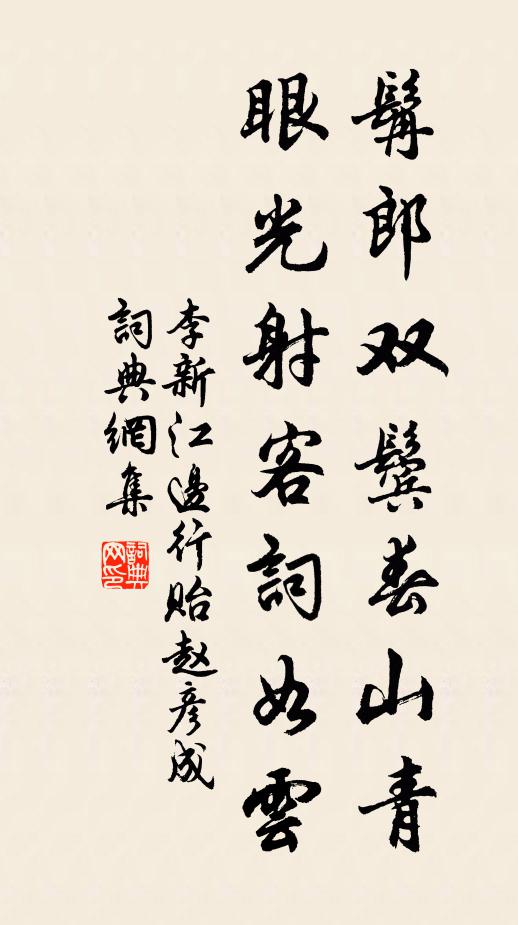 髯郎双鬓春山青
眼光射客詞如雲
李新江邊行貽赵彦成
詞典網集
詞典网印